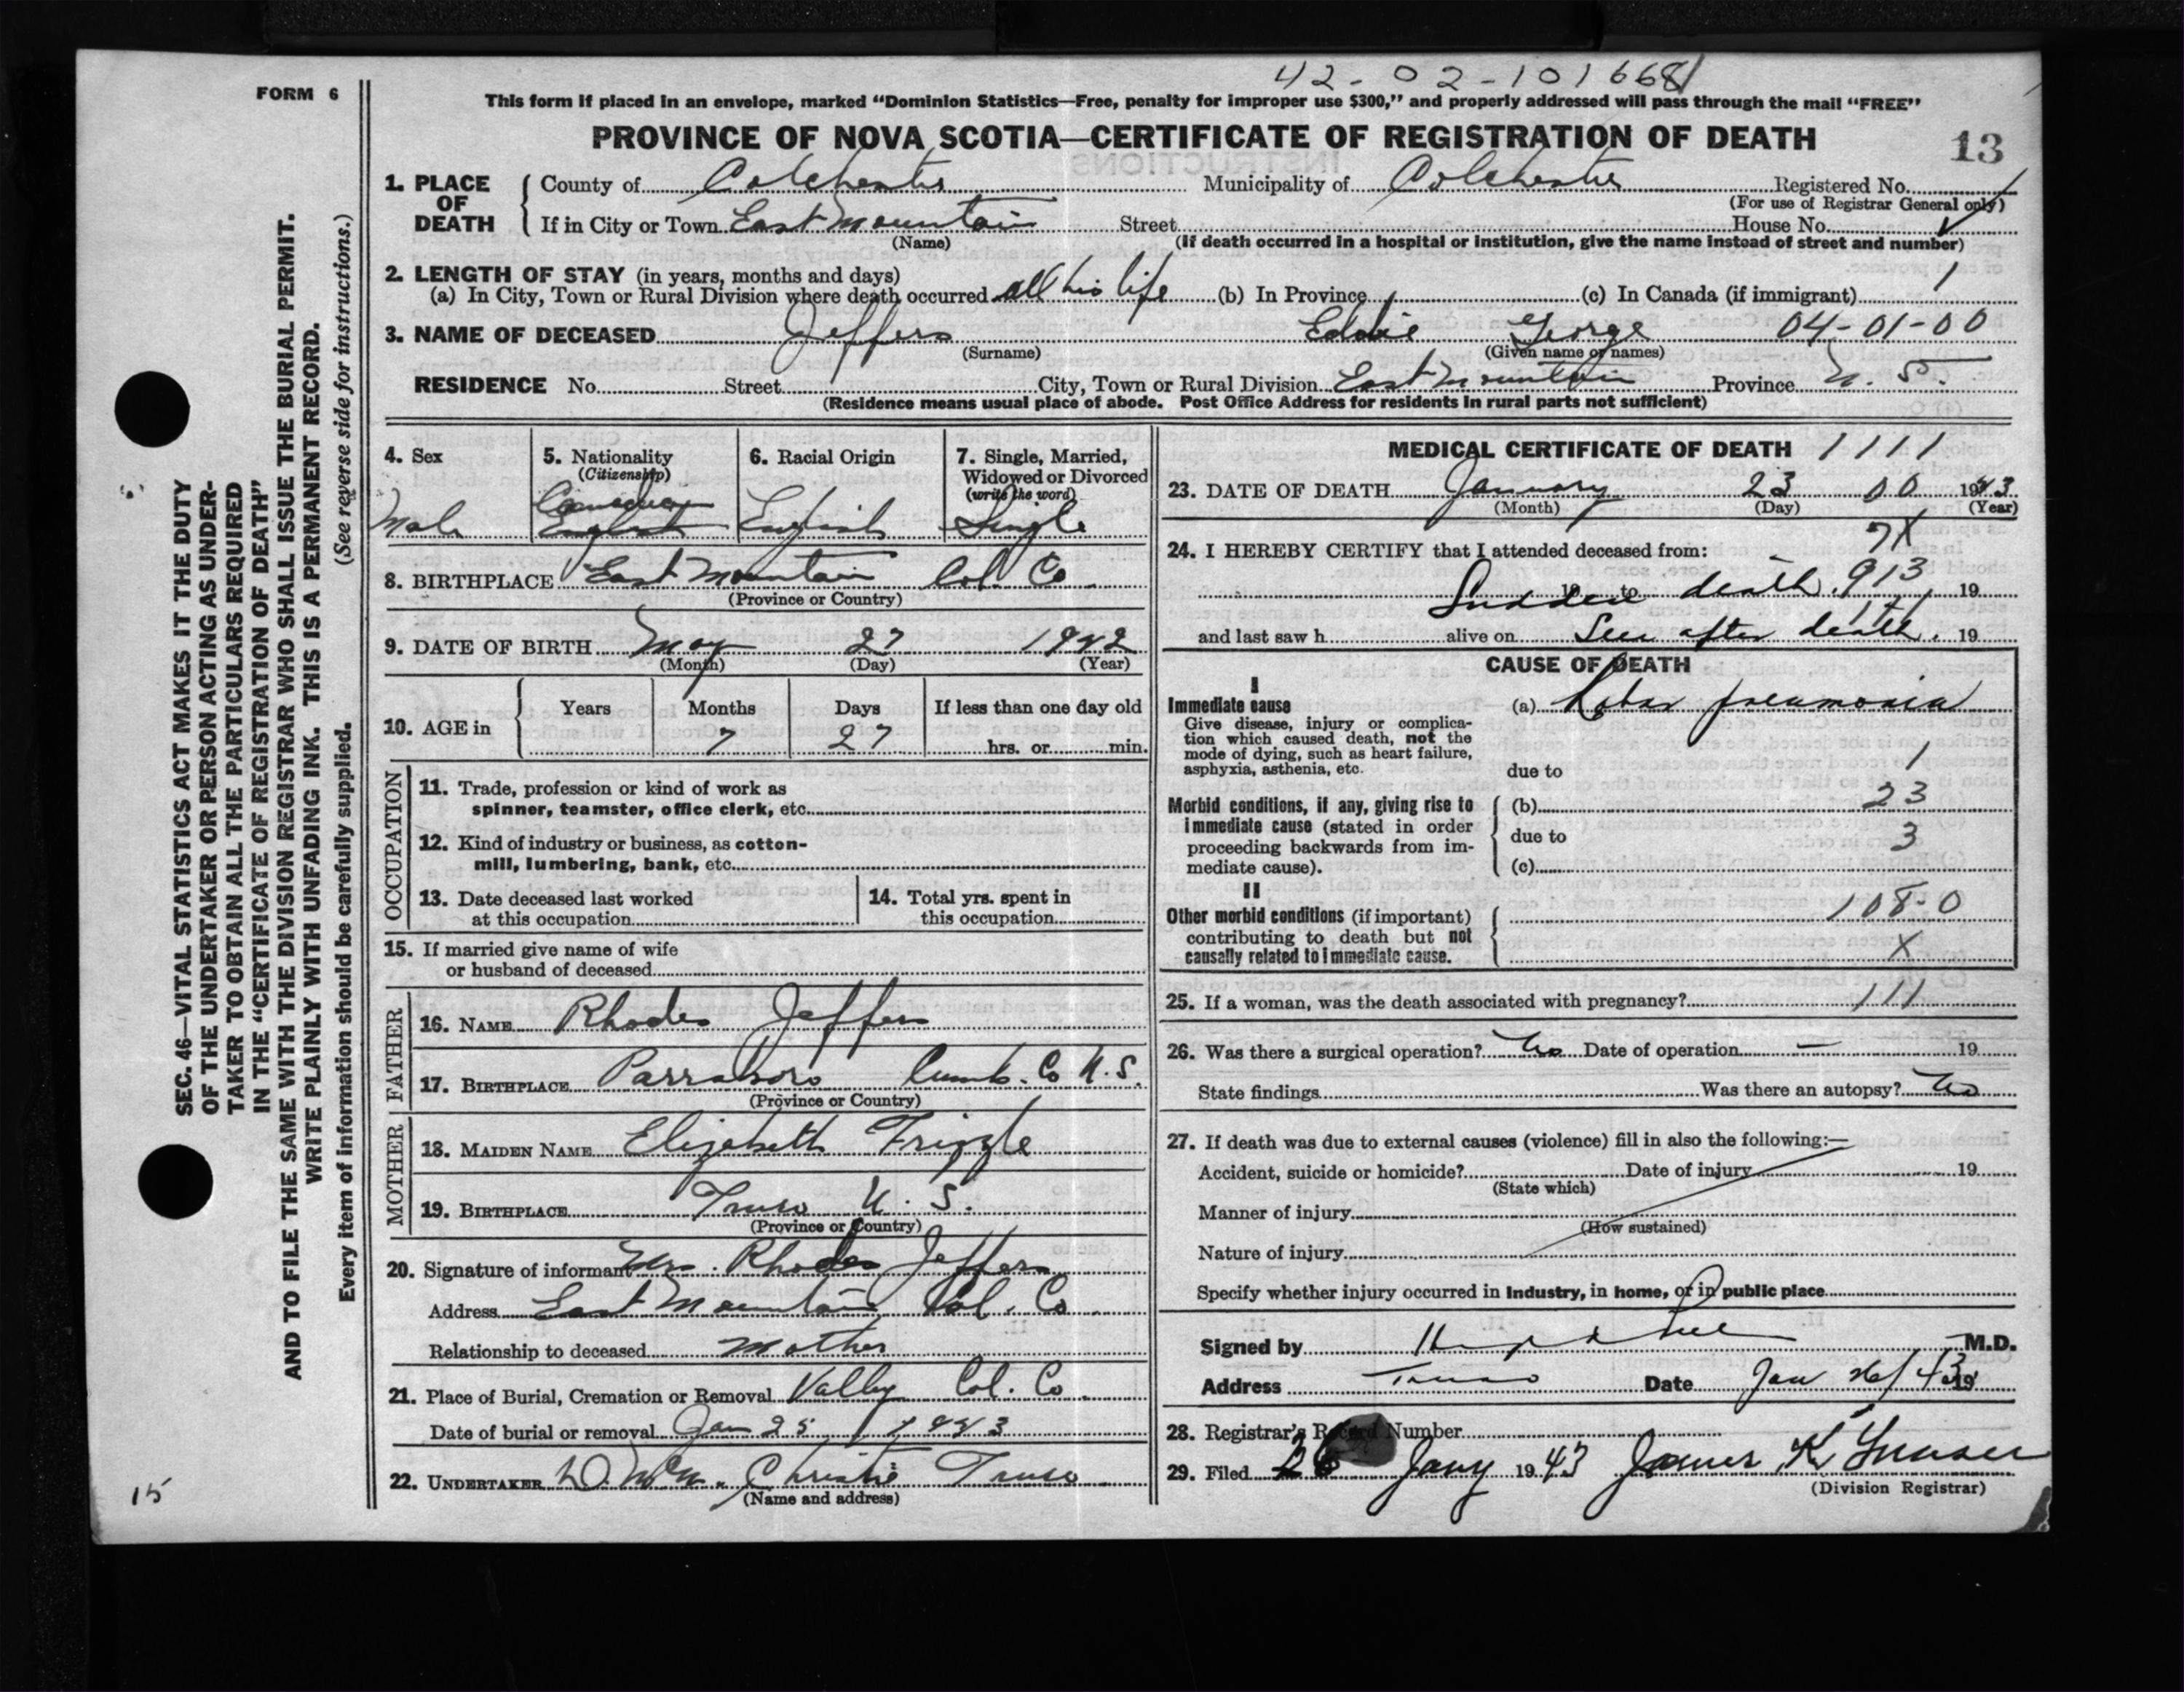 42-02-101668
FORM 6
This form if placed in an envelope, marked "Dominion Statistics—Free, penalty for improper use $300," and properly addressed will pass through the mail "FREE"
PROVINCE OF NOVA SCOTIA—CERTIFICATE OF REGISTRATION OF DEATH
13
1. PLACE OF DEATH
County of Colchester Municipality of Colchester Registered No.
(For use of Registrar General only)
If in City or Town East Mountain Street House No.
(Name) (If death occurred in a hospital or institution, give the name instead of street and number)
2. LENGTH OF STAY (in years, months and days) 1
(a) In City, Town or Rural Division where death occurred all his life (b) In Province (c) In Canada (if immigrant)
3. NAME OF DECEASED Jeffers Eddie George 04-01-00
(Surname) (Given name or names)
RESIDENCE No. Street City, Town or Rural Division East Mountain Province N. S.
(Residence means usual place of abode. Post Office Address for residents in rural parts not sufficient)
4. Sex
Male
5. Nationality
(Citizenship)
Canadian
English
6. Racial Origin
English
7. Single, Married,
Widowed or Divorced
(write the word)
Single
8. BIRTHPLACE East Mountain Col. Co.
(Province or Country)
9. DATE OF BIRTH May 27 1942
(Month) (Day) (Year)
10. AGE in Years Months Days If less than one day old
7 27 hrs. or min.
OCCUPATION
11. Trade, profession or kind of work as
spinner, teamster, office clerk, etc.
12. Kind of industry or business, as cotton-
mill, lumbering, bank, etc.
13. Date deceased last worked
at this occupation
14. Total yrs. spent in
this occupation
15. If married give name of wife
or husband of deceased
FATHER
16. NAME Rhodes Jeffers
17. BIRTHPLACE Parrsboro Cumb. Co N.S.
(Province or Country)
MOTHER
18. MAIDEN NAME Elizabeth Frizzle
19. BIRTHPLACE Truro N. S.
(Province or Country)
20. Signature of informant Mrs. Rhodes Jeffers
Address East Mountain Col. Co.
Relationship to deceased Mother
21. Place of Burial, Cremation or Removal Valley Col. Co.
Date of burial or removal Jan 25 1943
22. UNDERTAKER Christie Truro
(Name and address)
MEDICAL CERTIFICATE OF DEATH 1111
23. DATE OF DEATH January 23 00 1943
(Month) (Day) (Year)
7X
24. I HEREBY CERTIFY that I attended deceased from:
19 to 19
Sudden death. 913
and last saw h alive on Seen after death. 19
CAUSE OF DEATH
I
Immediate cause (a) Lobar pneumonia
Give disease, injury or complica-
tion which caused death, not the
mode of dying, such as heart failure,
asphyxia, asthenia, etc.
due to 1
Morbid conditions, if any, giving rise to (b) 23
immediate cause (stated in order due to 3
proceeding backwards from im-
mediate cause). (c)
II
Other morbid conditions (if important) 108-0
contributing to death but not
causally related to immediate cause. X
25. If a woman, was the death associated with pregnancy? 111
26. Was there a surgical operation? No Date of operation — 19
State findings Was there an autopsy? No
27. If death was due to external causes (violence) fill in also the following:—
Accident, suicide or homicide? Date of injury 19
(State which)
Manner of injury
(How sustained)
Nature of injury
Specify whether injury occurred in Industry, in home, or in public place
Signed by M.D.
Address Truro Date Jan 26/43 19
28. Registrar's Record Number
29. Filed 26 Jany 1943 James K
(Division Registrar)
SEC. 46—VITAL STATISTICS ACT MAKES IT THE DUTY
OF THE UNDERTAKER OR PERSON ACTING AS UNDER-
TAKER TO OBTAIN ALL THE PARTICULARS REQUIRED
IN THE "CERTIFICATE OF REGISTRATION OF DEATH"
AND TO FILE THE SAME WITH THE DIVISION REGISTRAR WHO SHALL ISSUE THE BURIAL PERMIT.
WRITE PLAINLY WITH UNFADING INK. THIS IS A PERMANENT RECORD.
Every item of information should be carefully supplied. (See reverse side for instructions.)
15